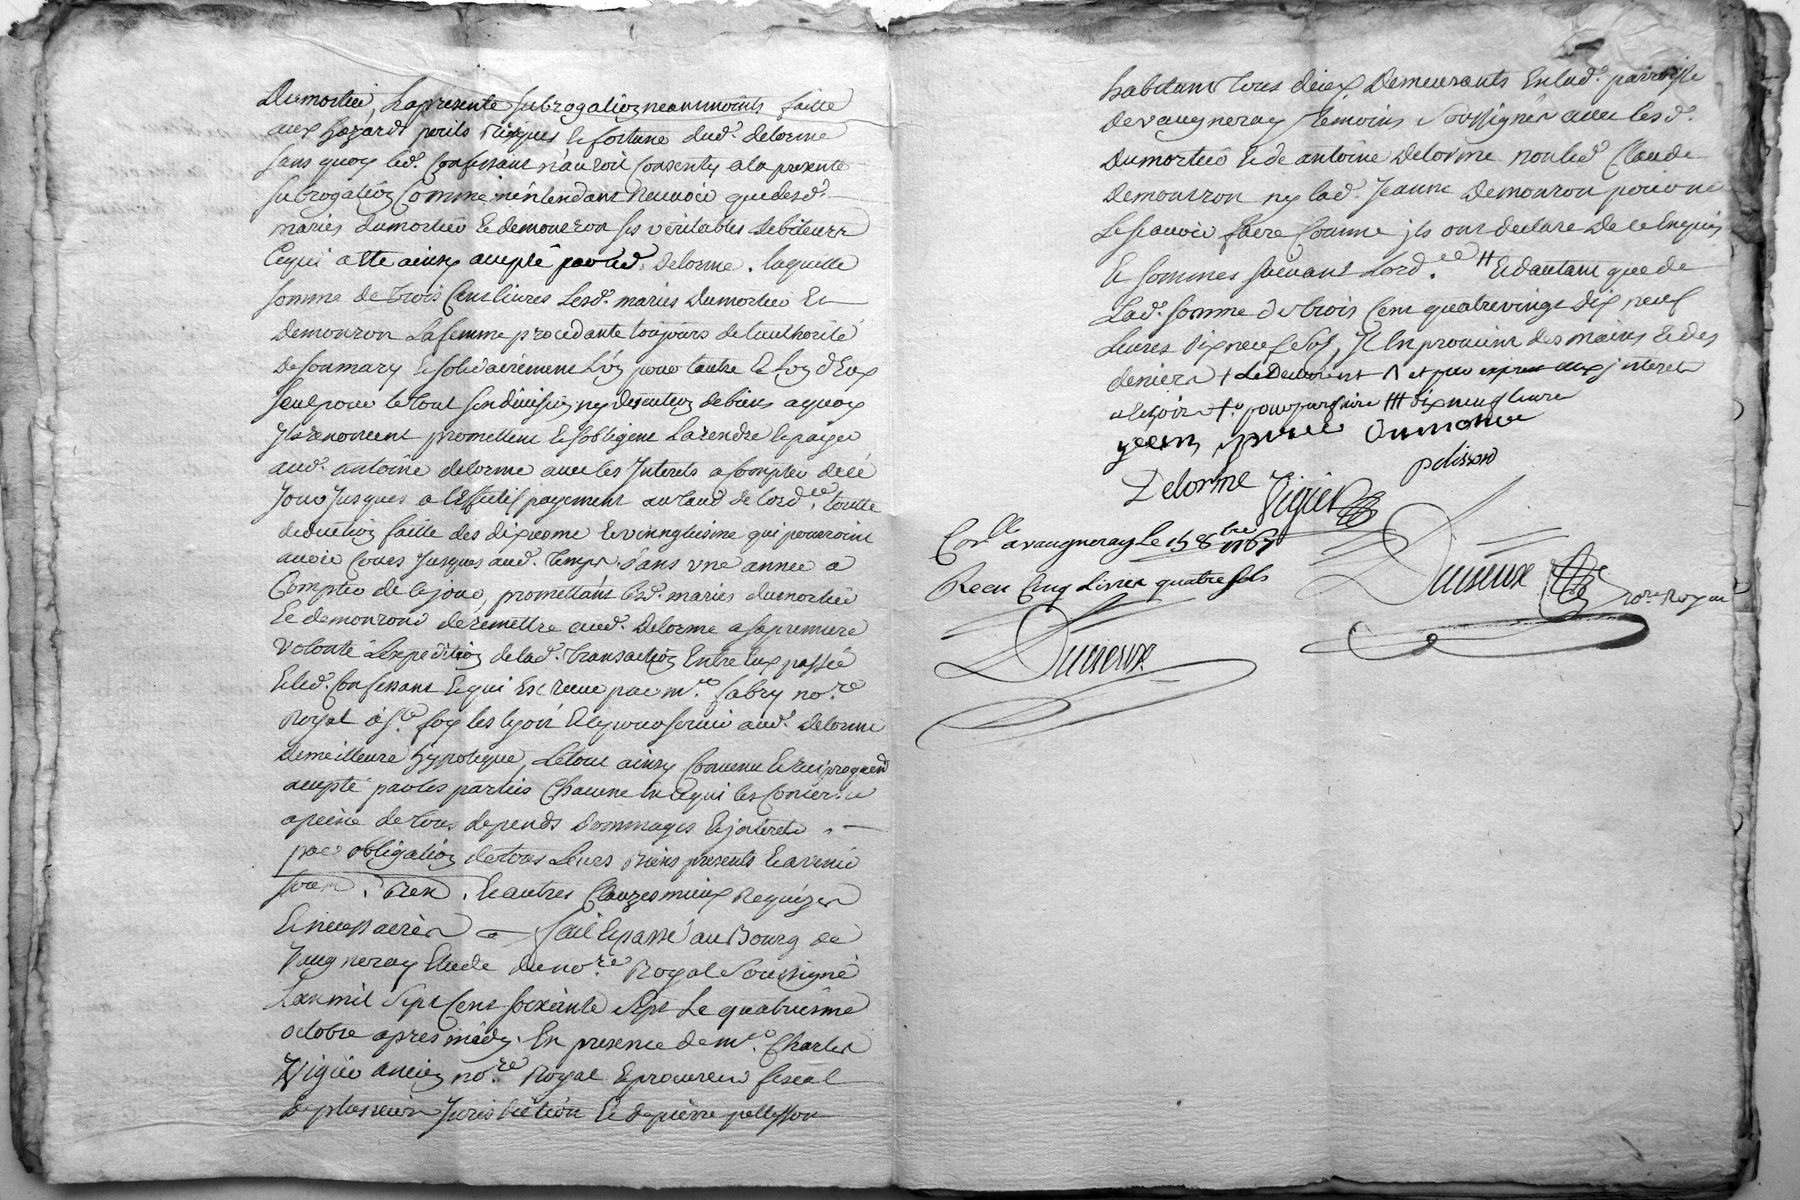 Dumortier, la presente subrogation neanmoints faitte
aux hazards perils risques et fortune dud. delorme
sans quoy led. Confessant n'auroit Consenty a la presente
subrogation Comme n'entendant avoir que lesd.
mariés dumortier et demouron ses veritables debiteurs
Ce qui a été ainsy accepté par led. delorme. laquelle
somme de trois Cens livres lesd. mariés Dumortier Et
demouron la femme procedante toujours de l'authorité
de son mary et solidairement l'un pour l'autre et l'un d'Eux
seul pour le tout sans division ny discution de biens a quoy
Ils renoncent promettent et s'obligent la rendre et payer
aud. antoine delorme avec les Interets a Compter de ce
Jour Jusques a l'Effectif payement au taux de l'ord.ce toutte
deduction faitte des dixieme et vinngtieme qui pourroint
avoir Cours Jusques aud. temps dans une année a
Compter de ce jour, promettant lesd. mariés dumortier
et demouron de remettre aud. Delorme a sa premiere
volonté l'expedition de lad. transaction Entre eux passée
et led. Confessant et qui Est reçue par m.re fabry no.re
Royal à s.te foy les lyon Et cy pour servir aud. delorme
de meilleure hypoteque, le tout ainsy Convenu et reciproquem.t
accepté par les parties Chacune en ce qui les Concerne
a peine de tous depends Dommages et jnterets . —
par obligation de tous leurs Biens presents et avenir
soum. . Ren . et autres Clauzes mieux Requizes
et necessaires — fait et passé au Bourg de
Vaugneray Etude du no.re Royal Soussigné
L'an mil Sept Cent soixante Sept le quatrieme
octobre apres midy. En presence de m.re Charles
Vigier ancien no.re Royal et procureur fiscal
de plusieurs Jurisdiction et de pierre pellisson
habitant tous deux Demeurants En lad. parroisse
de vaugneray temoins Soussignés avec lesd.
Dumortier et de antoine Delorme non led. Claude
demouron ny lad. Jeanne Demouron pour ne
le scavoir faire Comme jls ont declaré de ce Enquis
et sommés suivant l'ord.ce # Et d'autant que de
lad. somme de trois Cent quatre vingt Dix neuf
livres Dix neuf sols, Il En provient des mains et des
deniers + le Dumortier et par exprest aux jnterets
a Echoir pour parfaire ## dix neuf livres
jean pierre Dumortier
pelisson
Delorme Vigier
Con.lle a vaugneray le 15 8bre 1767
Recu Cinq Livres quatre sols
Duisieux no.re Royal
Duisieux